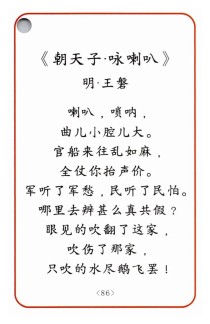 《朝天子·咏喇叭》
明·王磐
喇叭，唢呐，
曲儿小腔儿大。
官船来往乱如麻，
全仗你抬声价。
军听了军愁，民听了民怕。
哪里去辨甚么真共假？
眼见的吹翻了这家，
吹伤了那家，
只吹的水尽鹅飞罢！
<86>